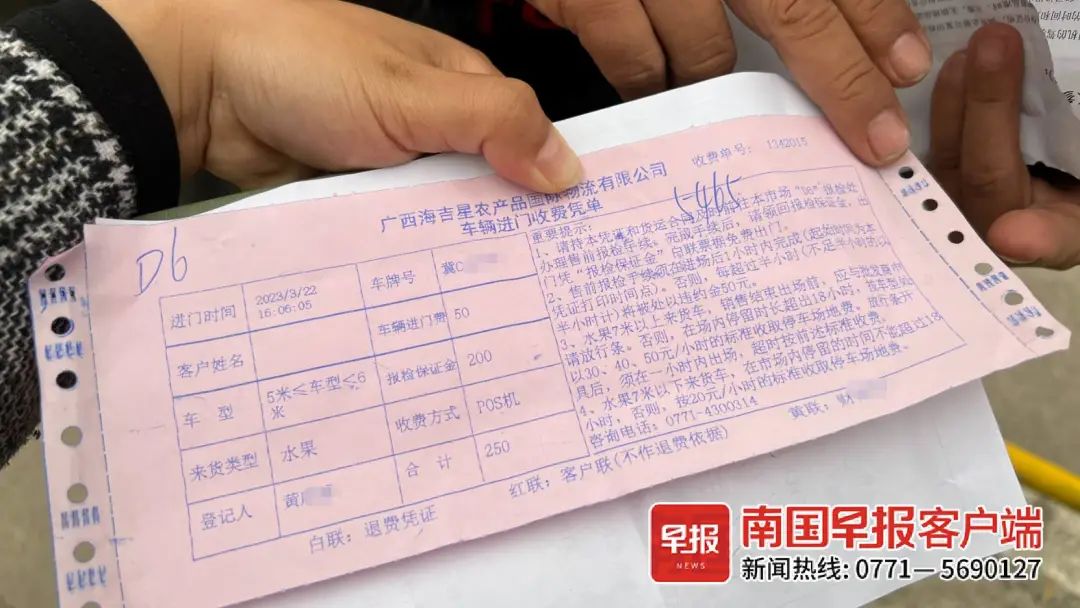 广西海吉星农产品国际物流有限公司
车辆进门收费凭单
收费单号: 1342015
D6
5465
进门时间 2023/3/22 16:06:05 车牌号 冀C
客户姓名 车辆进门费 50
车 型 5米≤车型≤6米 报检保证金 200
来货类型 水果 收费方式 POS机
登记人 黄 合 计 250
重要提示:
1、请持本凭证和货运合同及时前往本市场
办理售前报检手续。完成手续后,请领回报检保证金,出
门凭“报检保证金”白联票据免费出门。
2、售前报检手续须在进场后1小时内完成(起始时间为本
凭证打印时间点)。否则,每超过半小时(不足半小时的以
半小时计)将被处以违约金50元。
3、水果7米以上来货车,销售结束出场前,应与批发商
请放行条。否则,在场内停留时长超出18小时,按车型
以30、40、50元/小时的标准收取停车场地费。放行条开
具后,须在一小时内出场,超时按前述标准收费。
4、水果7米以下来货车,在市场内停留的时间不能超过18
小时,否则,按20元/小时的标准收取停车场地费。
咨询电话:0771-4300314
白联:退费凭证
红联:客户联(不作退费依据)
黄联:财
早报
NEWS
南国早报客户端
新闻热线:0771—5690127